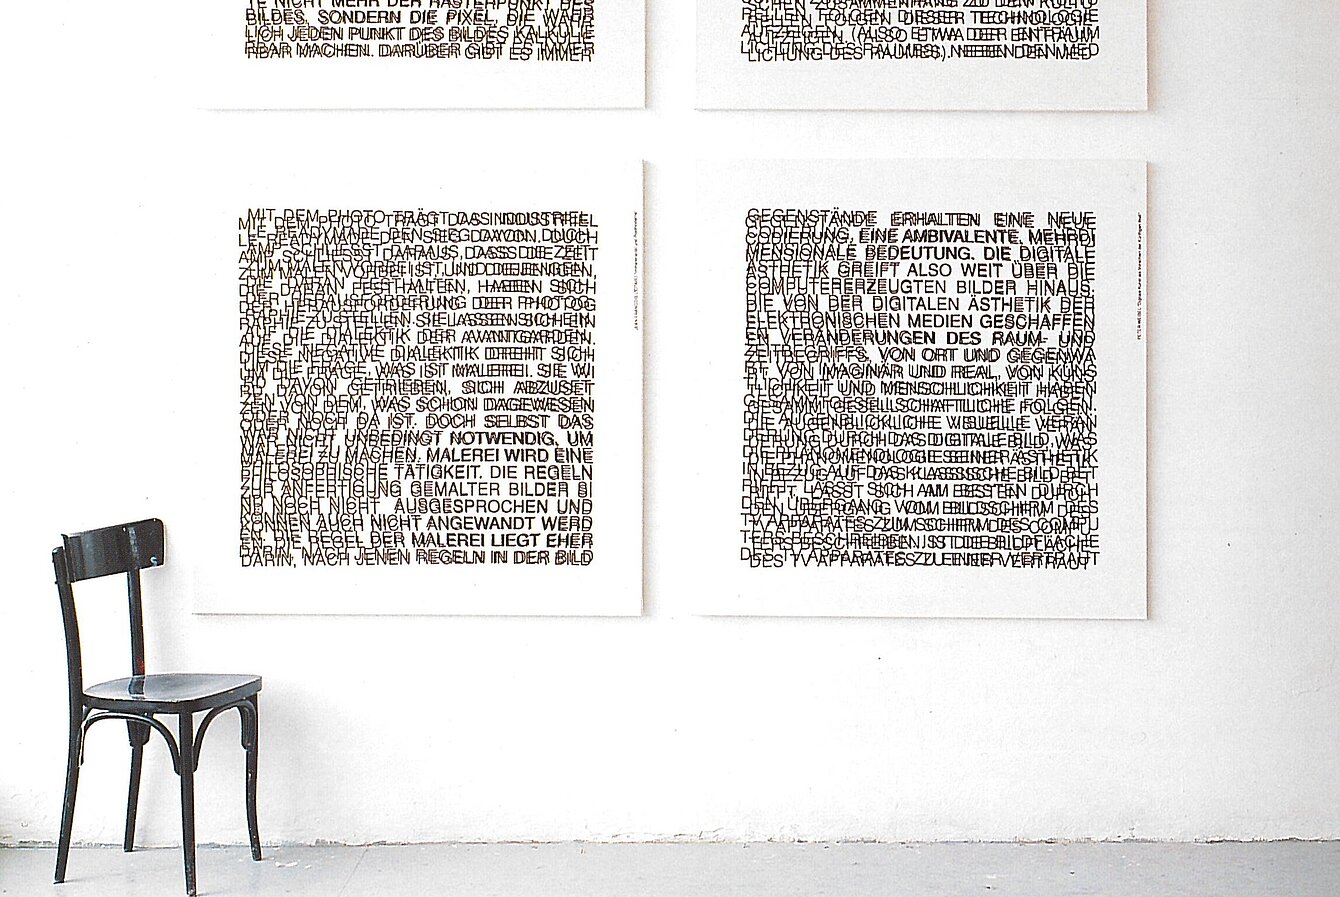 TE NICHT MEHR DER RASTERPUNKT DES
BILDES, SONDERN DIE PIXEL, DIE WAHR
LICH JEDEN PUNKT DES BILDES KALKULIE
RBAR MACHEN. DARÜBER GIBT ES IMMER
SCHEN ZUSAMMENHANG ZU DEN KULTU
RELLEN FOLGEN DIESER TECHNOLOGIE
AUFZEIGEN. (ALSO ETWA DER ENTRÄUM
LICHUNG DES RAUMES). NEBEN DEN MED
MIT DEM PHOTO TRÄGT DAS INDUSTRIEL
LE READYMADE DEN SIEG DAVON. DUCH
AMP SCHLIESST DARAUS, DASS DIE ZEIT
ZUM MALEN VORBEI IST. UND DIEJENIGEN,
DIE DARAN FESTHALTEN, HABEN SICH
DER HERAUSFORDERUNG DER PHOTOG
RAPHIE ZU STELLEN. SIE LASSEN SICH EIN
AUF DIE DIALEKTIK DER AVANTGARDEN.
DIESE NEGATIVE DIALEKTIK DREHT SICH
UM DIE FRAGE, WAS IST MALEREI. SIE WI
RD DAVON GETRIEBEN, SICH ABZUSET
ZEN VON DEM, WAS SCHON DAGEWESEN
ODER NOCH DA IST. DOCH SELBST DAS
WAR NICHT UNBEDINGT NOTWENDIG, UM
MALEREI ZU MACHEN. MALEREI WIRD EINE
PHILOSOPHISCHE TÄTIGKEIT. DIE REGELN
ZUR ANFERTIGUNG GEMALTER BILDER SI
ND NOCH NICHT AUSGESPROCHEN UND
KÖNNEN AUCH NICHT ANGEWANDT WERD
EN. DIE REGEL DER MALEREI LIEGT EHER
DARIN, NACH JENEN REGELN IN DER BILD
GEGENSTÄNDE ERHALTEN EINE NEUE
CODIERUNG, EINE AMBIVALENTE, MEHRDI
MENSIONALE BEDEUTUNG. DIE DIGITALE
ÄSTHETIK GREIFT ALSO WEIT ÜBER DIE
COMPUTERERZEUGTEN BILDER HINAUS.
DIE VON DER DIGITALEN ÄSTHETIK DER
ELEKTRONISCHEN MEDIEN GESCHAFFEN
EN VERÄNDERUNGEN DES RAUM- UND
ZEITBEGRIFFS, VON ORT UND GEGENWA
RT, VON IMAGINÄR UND REAL, VON KÜNS
TLICHKEIT UND MENSCHLICHKEIT HABEN
GESAMMTGESELLSCHAFTLICHE FOLGEN.
DIE AUGENBLICKLICHE VISUELLE VERÄN
DERUNG DURCH DAS DIGITALE BILD, WAS
DIE PHÄNOMENOLOGIE SEINER ÄSTHETIK
IN BEZUG AUF DAS KLASSISCHE BILD BET
RIFFT, LÄSST SICH AM BESTEN DURCH
DEN ÜBERGANG VOM BILDSCHIRM DES
TV APPARATES ZUM SCHIRM DES COMPU
TERS BESCHREIBEN. IST DIE BILDFLÄCHE
DES TV APPARATES ZU EINER VERTRAUT